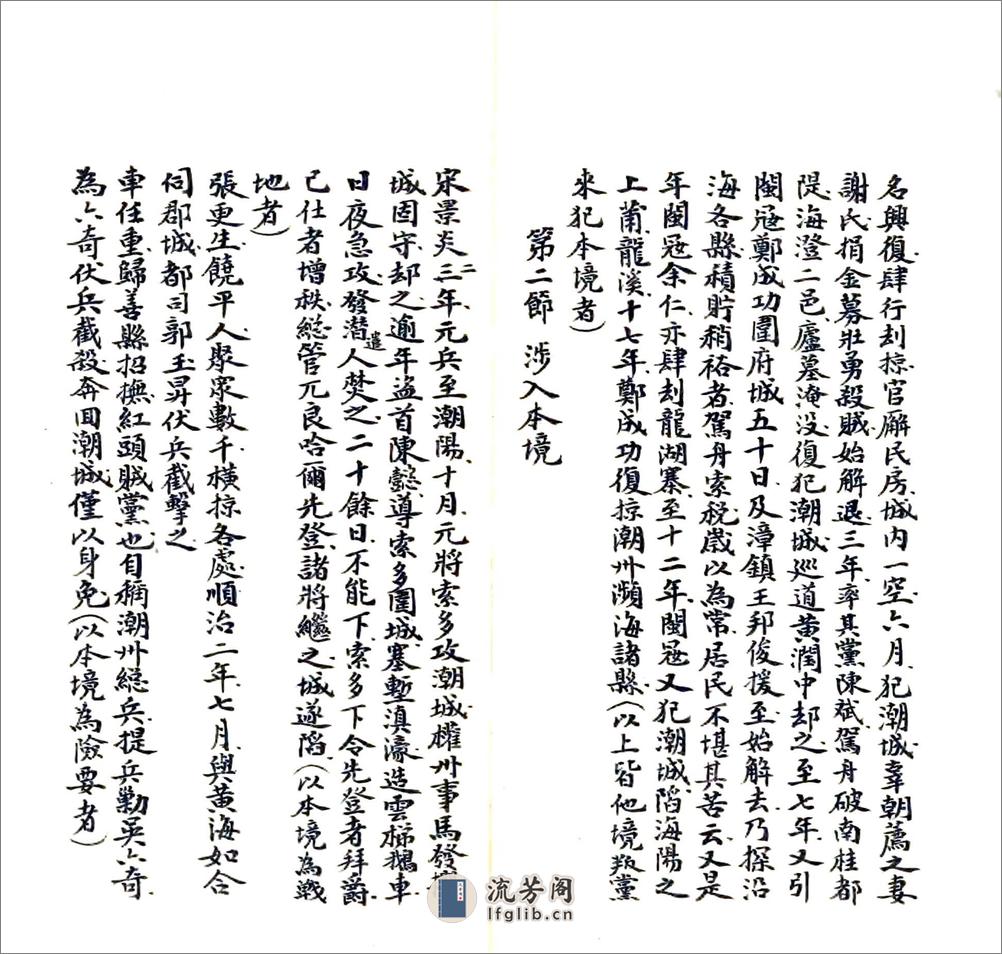 名興復肆行刦掠官廨民房城内一空六月犯潮城辜朝薦之妻
謝氏捐金募壯勇殺賊始解退三年率其黨陳斌駕舟破南桂都
隄海澄二邑廬墓淹没復犯潮城巡道黄潤中却之至七年又引
閩冦鄭成功圍府城五十日及漳鎮王邦俊援至始解去乃探沿
海各縣積貯稍裕者駕舟索税歲以為常居民不堪其苦云又是
年閩冦余仁亦肆刦龍湖寨至十二年閩冦又犯潮城陷海陽之
上莆龍溪十七年鄭成功復掠潮州瀕海諸縣(以上皆他境叛黨
來犯本境者)
第二節 涉入本境
宋景炎三年元兵至潮陽十月元將索多攻潮城權州事馬發
二
城固守却之逾年盗首陳懿導索多圍城塞塹滇濠造雲梯鵝車
日夜急攻發潛人焚之二十餘日不能下索多下令先登者拜爵
遣
已仕者增秩総管兀良哈爾先登諸將繼之城遂陷(以本境為戰
地者)
張更生饒平人聚衆數千横掠各處順治二年七月與黄海如合
伺郡城都司郭玉昇伏兵截擊之
車任重歸善縣招撫紅頭賊黨也自稱潮州総兵提兵勦吴六奇
為六奇伏兵截殺奔回潮城僅以身免(以本境為險要者)
流芳阁
lfglib.cn